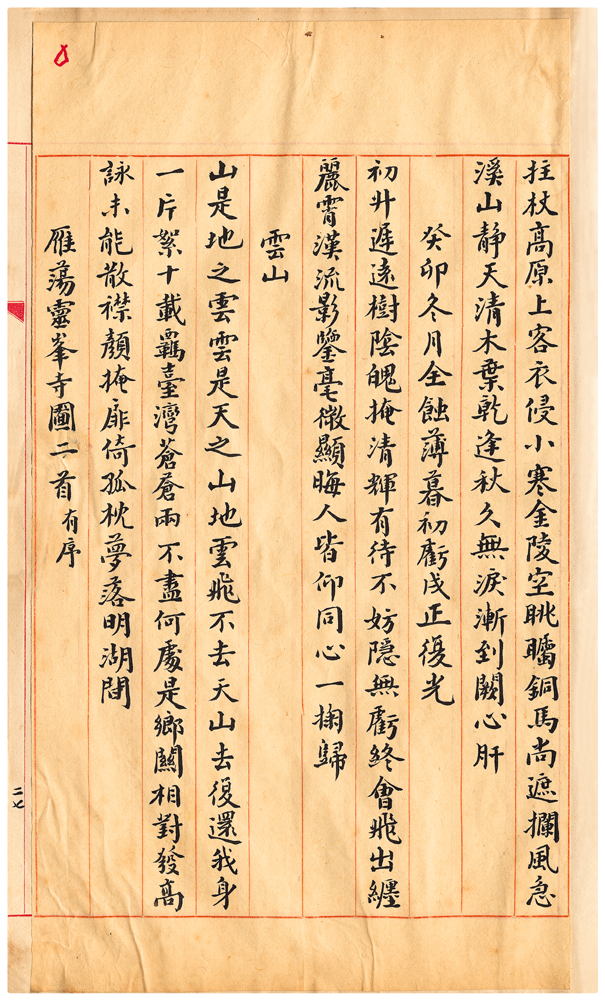 拄杖高原上客衣侵小寒金陵空眺矚銅馬尚遮攔風急
溪山靜天清木葉乾逢秋久無淚漸到闕心肝
癸卯冬月全蝕薄暮初虧戌正復光
初升遲遠樹陰魄掩清輝有待不妨隱無虧終會飛出纏
麗霄漢流影鑒毫微顯晦人皆仰同心一掬歸
雲山
山是地之雲雲是天之山地雲飛不去天山去復還我身
一片絮十載羈臺灣蒼蒼兩不盡何處是鄉關相對發高
詠未能散襟顏掩扉倚孤枕夢落明湖間
雁蕩靈峯寺圖二首有序
二七